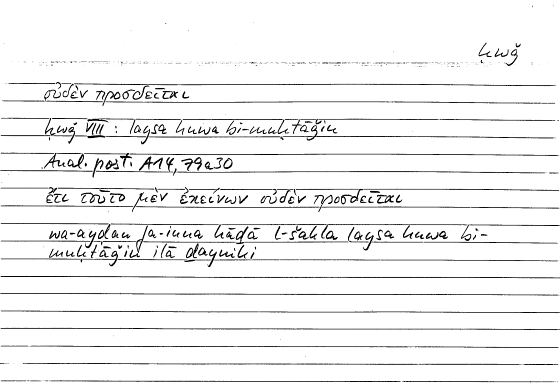 ḥwǧ
οὐδὲν προσδεῖται
ḥwǧ VIII : laysa huwa bi-muḥtāǧin
Anal. post. A14, 79a30
ἔτι τοῦτο μὲν ἐκείνων οὐδὲν προσδεῖται
wa-ayḍan fa-inna hāḏā l-šakla laysa huwa bi-
muḥtāǧin ilā ḏaynihi